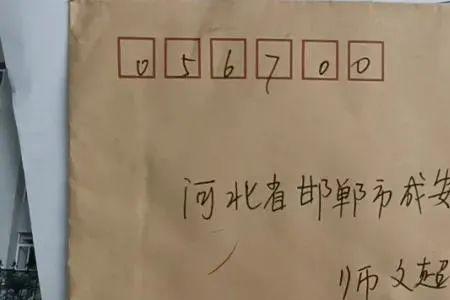 056700
河北省邯郸市成安
师文超